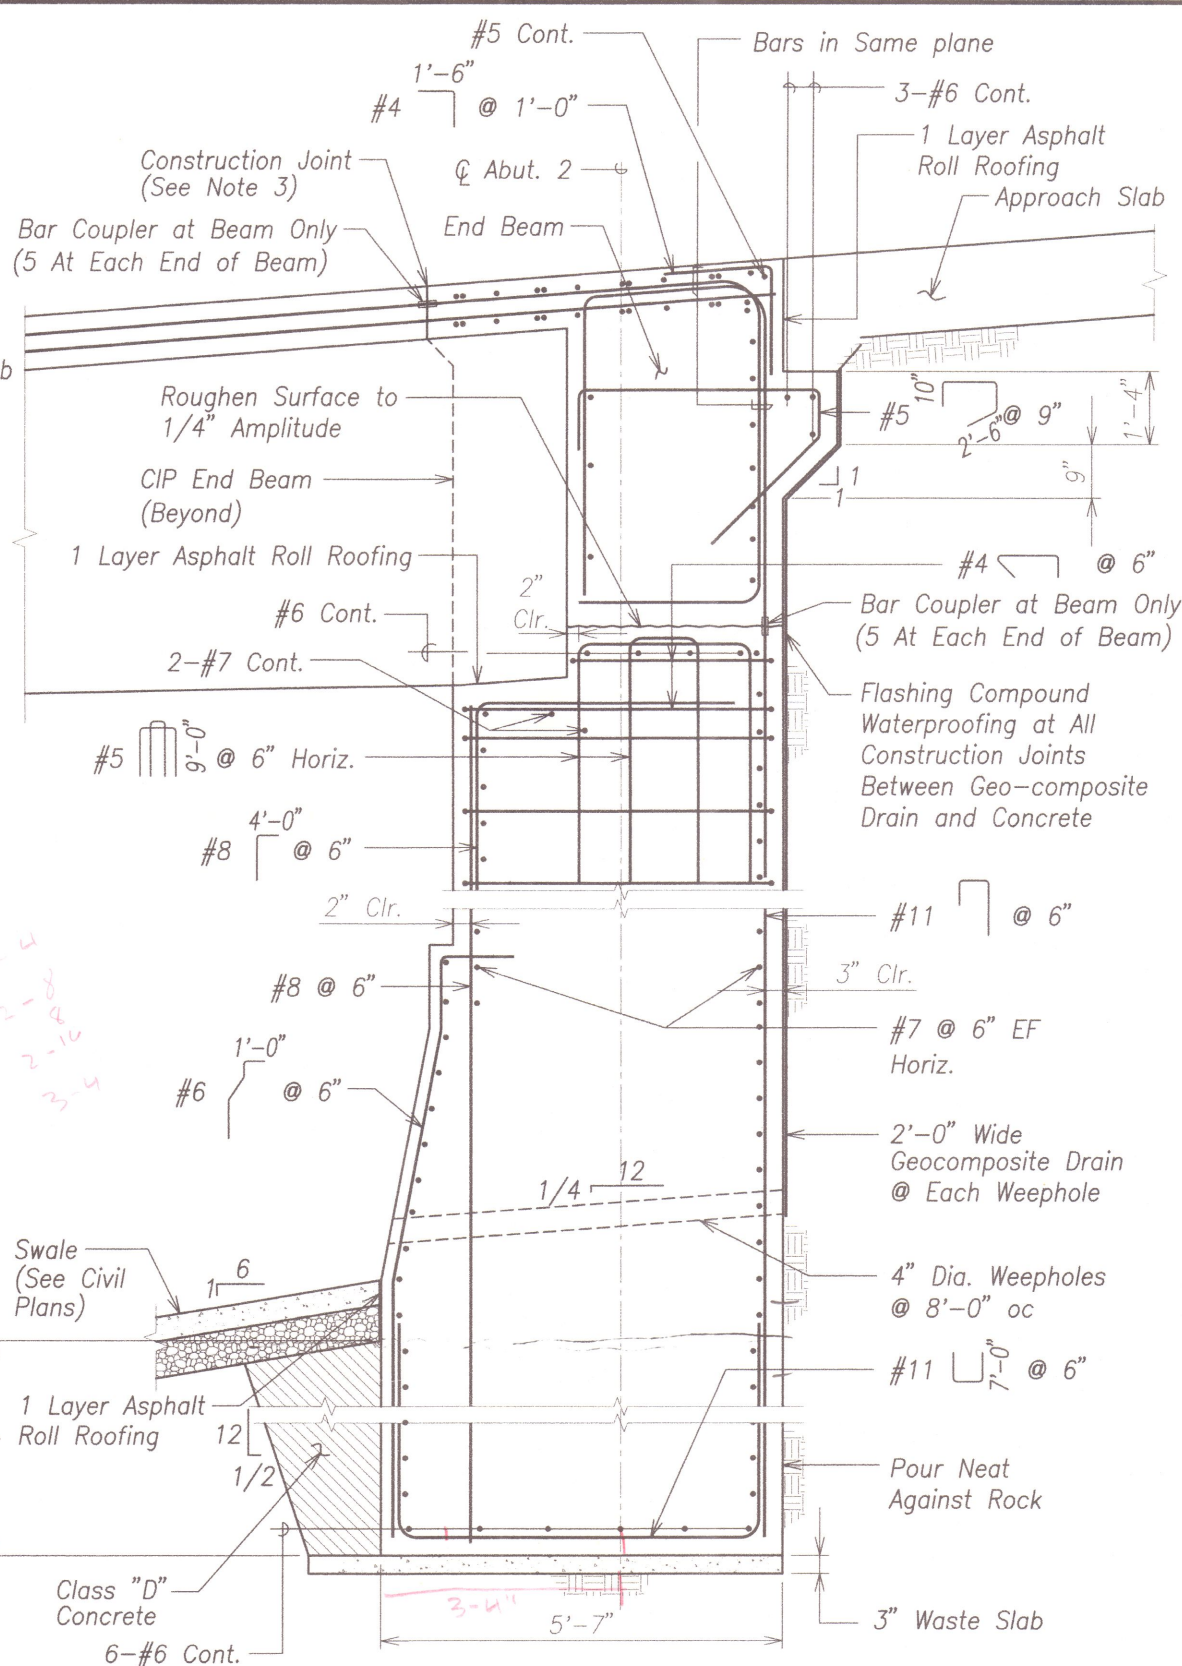 #5 Cont.
Bars in Same plane
1'-6"
#4 @ 1'-0"
3-#6 Cont.
1 Layer Asphalt
Roll Roofing
Construction Joint
(See Note 3)
℄ Abut. 2
Approach Slab
Bar Coupler at Beam Only
(5 At Each End of Beam)
End Beam
b
Roughen Surface to
1/4" Amplitude
#5 10" 2'-6" @ 9"
1'-4"
9"
1
1
CIP End Beam
(Beyond)
1 Layer Asphalt Roll Roofing
#4 @ 6"
2"
Clr.
#6 Cont.
Bar Coupler at Beam Only
(5 At Each End of Beam)
2-#7 Cont.
Flashing Compound
Waterproofing at All
Construction Joints
Between Geo-composite
Drain and Concrete
#5 9'-0" @ 6" Horiz.
4'-0"
#8 @ 6"
2" Clr.
#11 @ 6"
3" Clr.
#8 @ 6"
#7 @ 6" EF
Horiz.
4
2-8
8
2-16
3-4
1'-0"
#6 @ 6"
2'-0" Wide
Geocomposite Drain
@ Each Weephole
12
1/4
Swale
(See Civil
Plans)
6
1
4" Dia. Weepholes
@ 8'-0" oc
#11 7'-0" @ 6"
1 Layer Asphalt
Roll Roofing
12
1/2
Pour Neat
Against Rock
Class "D"
Concrete
3-4"
5'-7"
3" Waste Slab
6-#6 Cont.